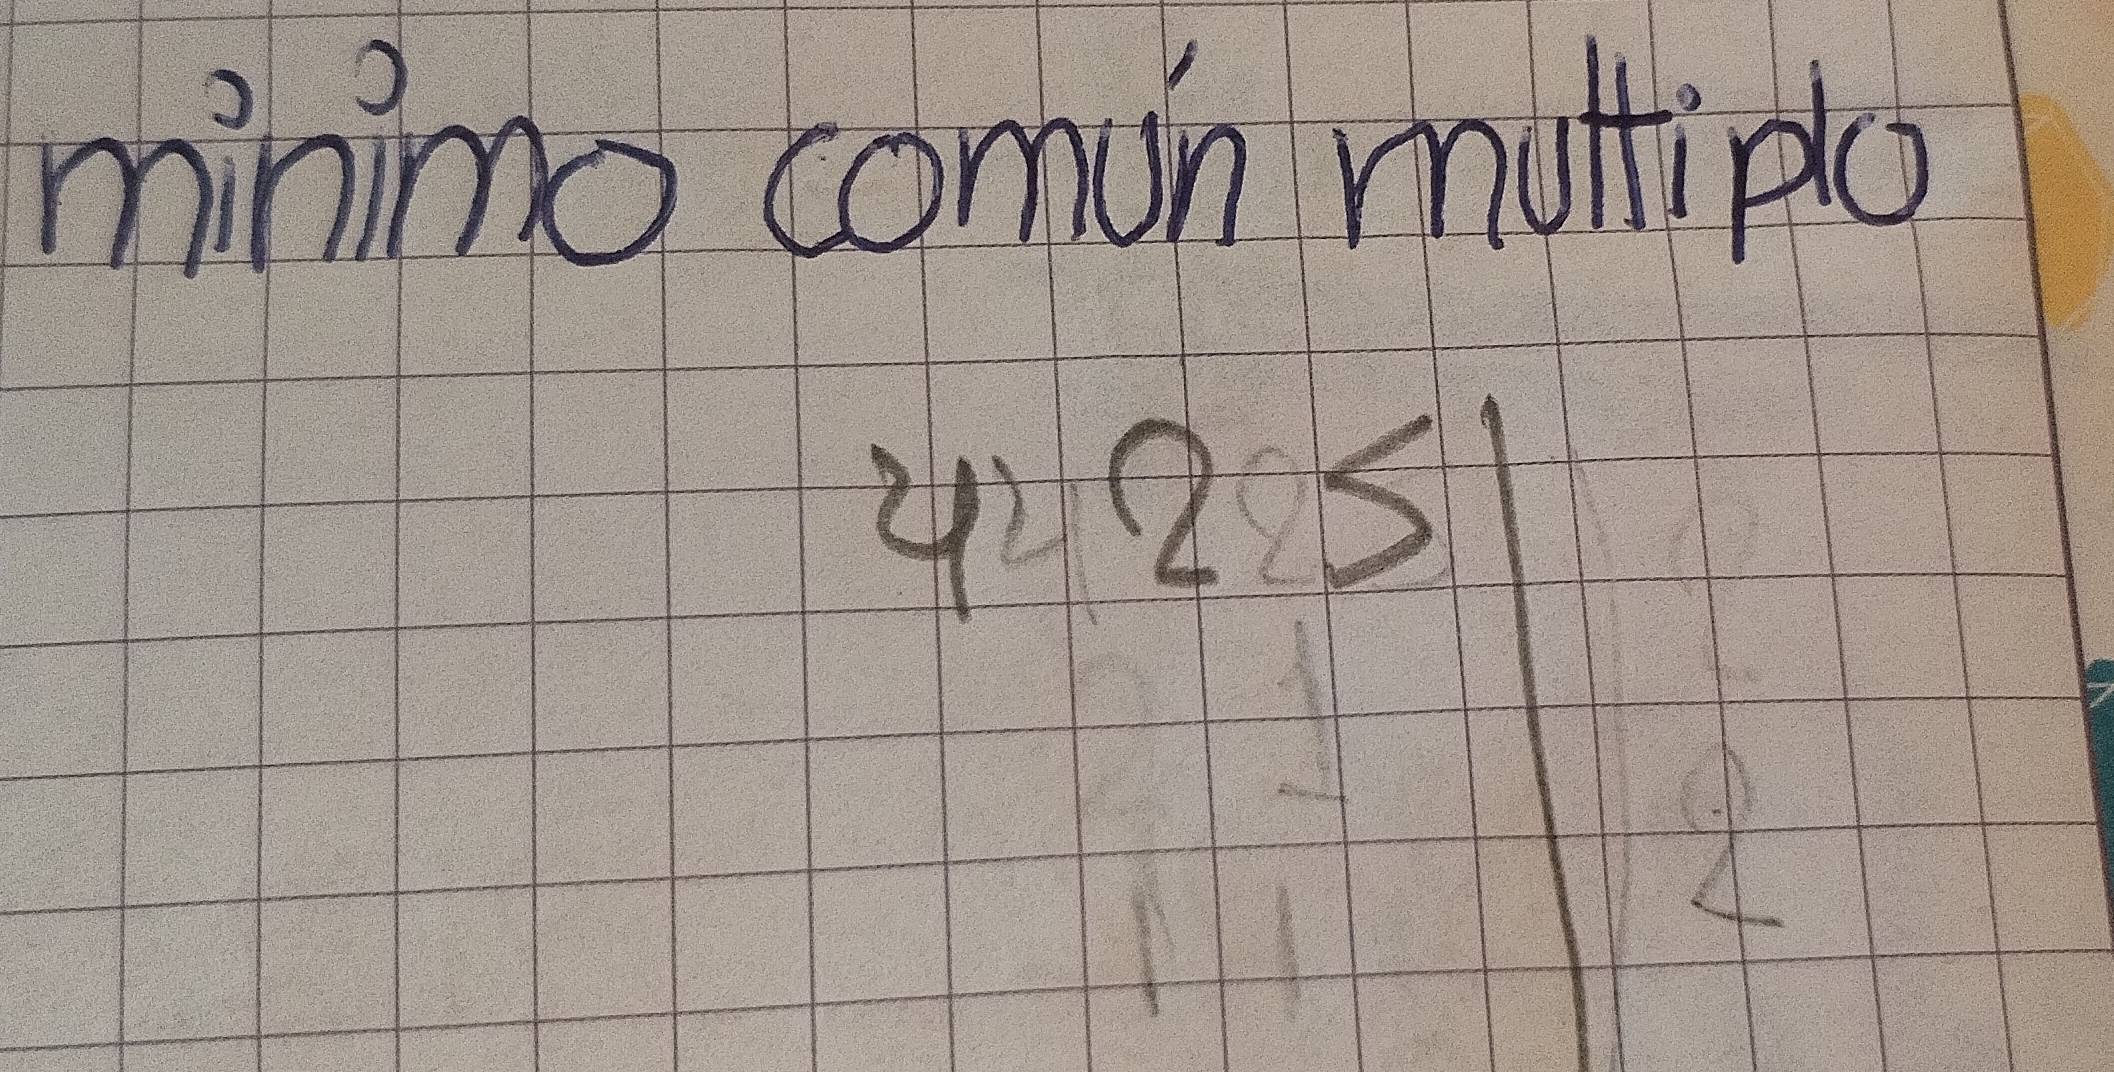 minimo común multiplo
4 2 5
2